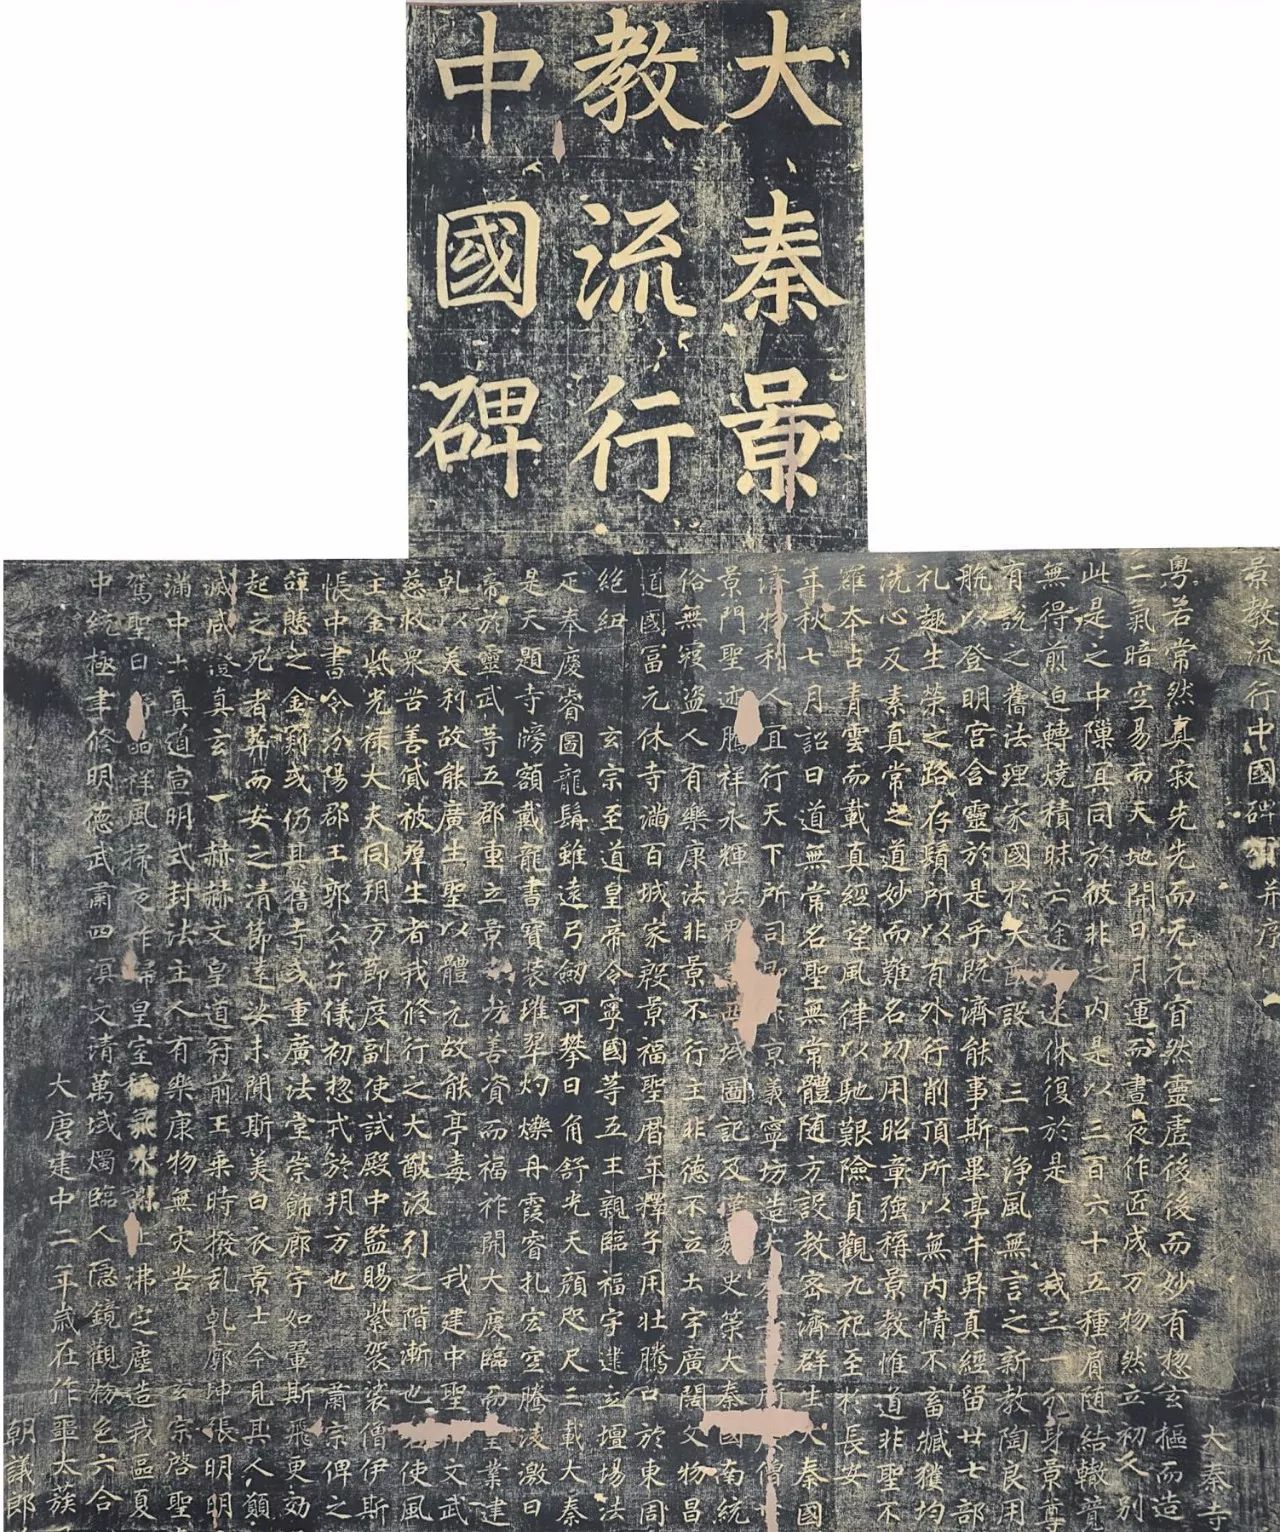 大秦景
教流行
中國碑
景教流行中國碑頌并序
大秦寺
粵若常然真寂先先而无元窅然靈虛後後而妙有惣玄樞而造
二氣暗空易而天地開日月運而晝夜作匠成万物然立初人別
此是之中隟冥同於彼非之內是以三百六十五種肩随結轍竟
無得煎迫轉燒積昧亡途久迷休復於是 我三一分身景尊
有說之舊法理家國於大猷設 三一浄風無言之新教陶良用
脫以登明宮含靈於是乎既濟能事斯畢亭午昇真經留廿七部
礼趣生榮之路存鬚所以有外行削頂所以無內情不畜臧獲均
洗心反素真常之道妙而難名功用昭彰強稱景教惟道非聖不
羅本占青雲而載真經望風律以馳艱險貞觀九祀至於長安
年秋七月詔曰道無常名聖無常體随方設教密濟群生大秦國
濟物利人宜行天下所司即京義寧坊造大僧
景門聖迹騰祥永輝法界西域圖記及漢魏史策大秦國南統
俗無寇盜人有樂康法非景不行主非德不立土宇廣闊文物昌
道國富元休寺滿百城家殷景福聖曆年釋子用壯騰口於東周
絶紐 玄宗至道皇帝令寧國等五王親臨福宇建立壇場法
疋奉慶睿圖龍髯雖遠弓劍可攀日角舒光天顏咫尺三載大秦
是天題寺牓額戴龍書寶裝璀翠灼爍丹霞睿扎宏空騰凌激日
帝於靈武等五郡重立景寺元善資而福祚開大慶臨而皇業建
乹以美利故能廣生聖以體元故能亭毒 我建中聖神文武
慈救衆苦善貸被羣生者我修行之大猷汲引之階漸也若使風
主金紫光禄大夫同朔方節度副使試殿中監賜紫袈裟僧伊斯
帳中書令汾陽郡王郭公子儀初惣戎於朔方也 肅宗俾之
辝憩之金罽或仍其舊寺或重廣法堂崇飾廊宇如翬斯飛更効
起之死者葬而安之清節達娑未聞斯美白衣景士今見其人願
滅咸證真玄 一 赫赫文皇道冠前王乗時撥乱乹廓坤張明明
滿中土真道宣明式封法主人有樂康物無灾苦 玄宗啓聖
駕聖日舒晶祥風掃夜祚歸皇室祅氛永謝止沸定塵造我區夏
中統極聿修明德武肅四溟文清萬域燭臨人隱鏡觀物色六合
大唐建中二年歲在作噩太蔟
朝議郎